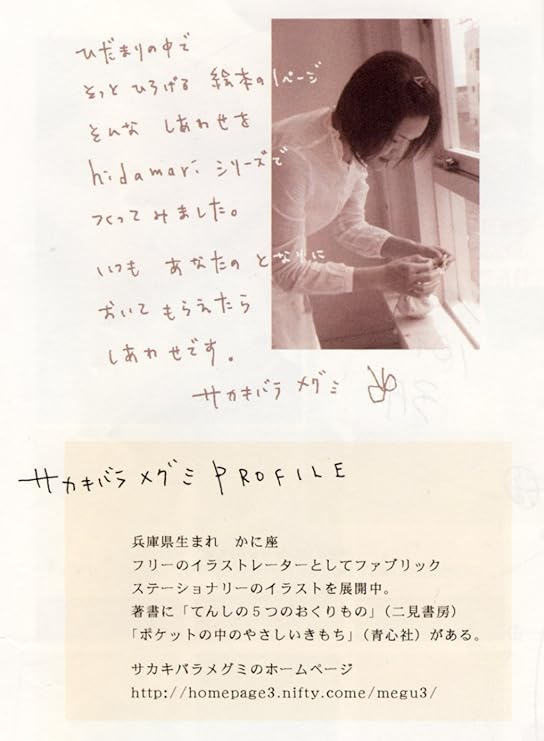 ひだまりの中で
そっと ひろげる 絵本の1ページ
そんな しあわせを
hidamari シリーズで
つくってみました。
いつも あなたの となりに
おいて もらえたら
しあわせです。
サカキバラ メグミ
サカキバラ メグミ PROFILE
兵庫県生まれ　かに座
フリーのイラストレーターとしてファブリック
ステーショナリーのイラストを展開中。
著書に「てんしの5つのおくりもの」（二見書房）
「ポケットの中のやさしいきもち」（青心社）がある。
サカキバラメグミのホームページ
http://homepage3.nifty.come/megu3/